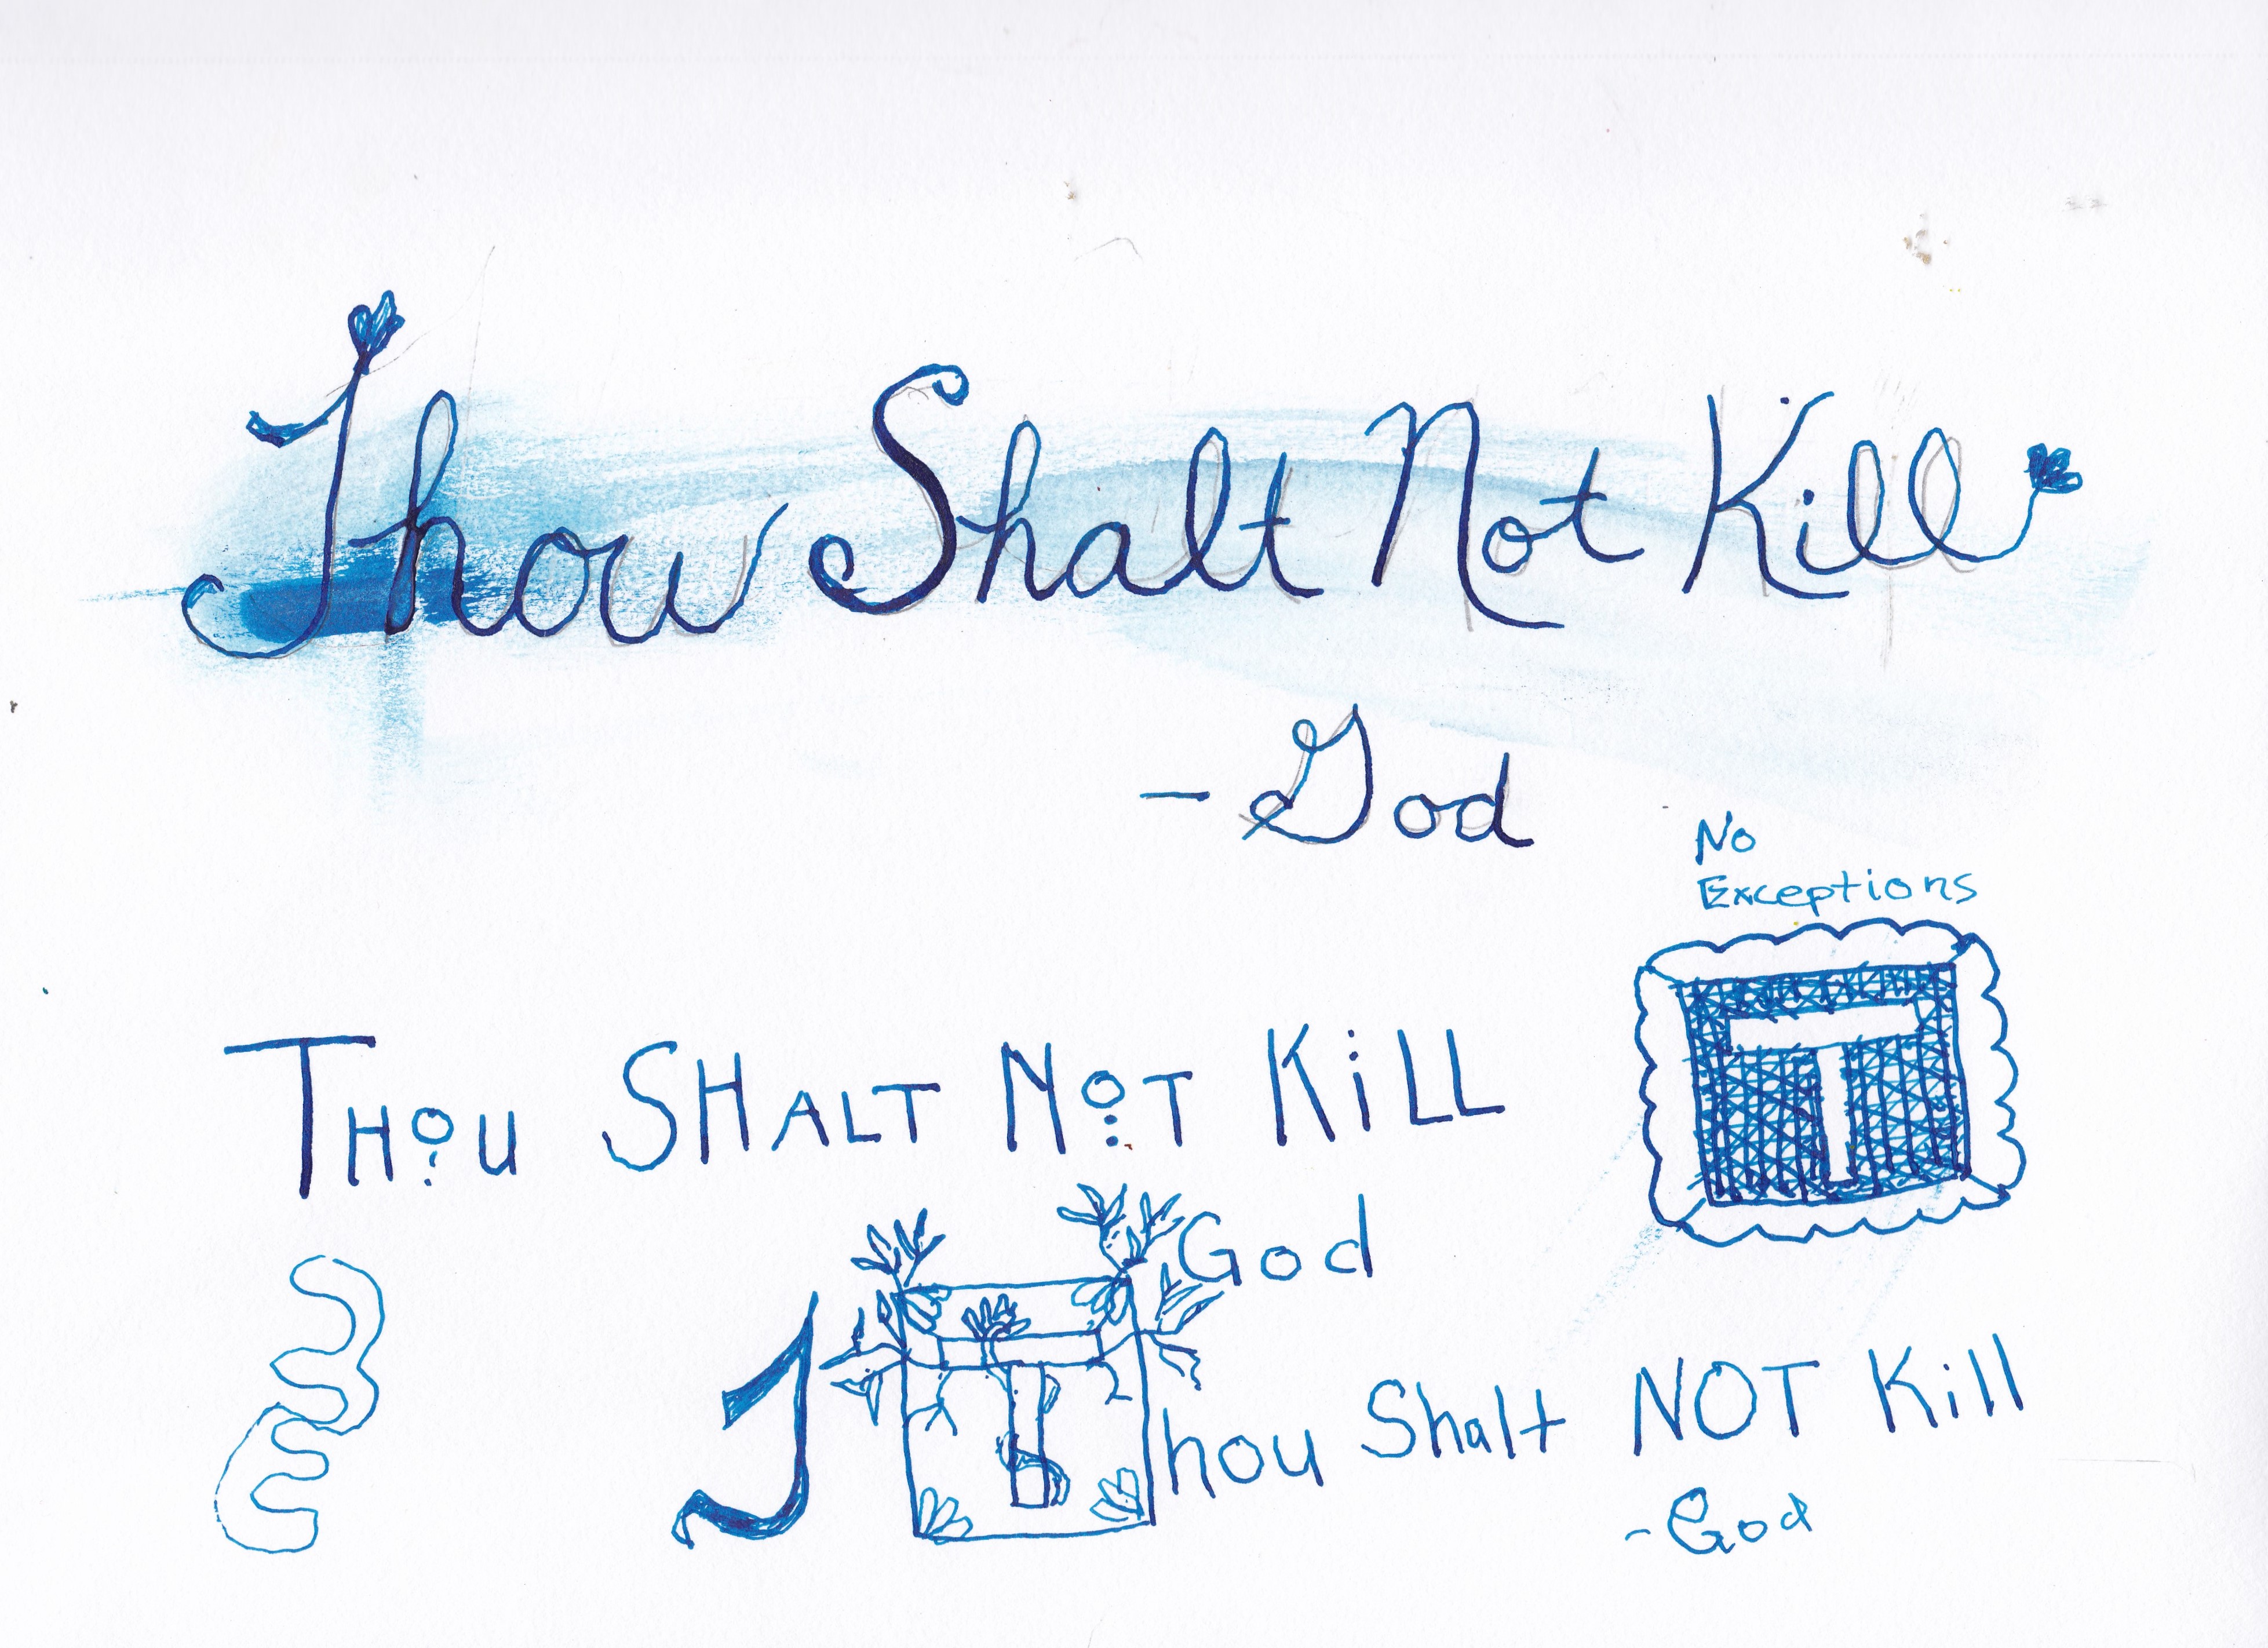 Thou Shalt Not Kill
- God
No
Exceptions
T
THOU SHALT NOT KiLL
God
T
Thou Shalt NOT Kill
- God